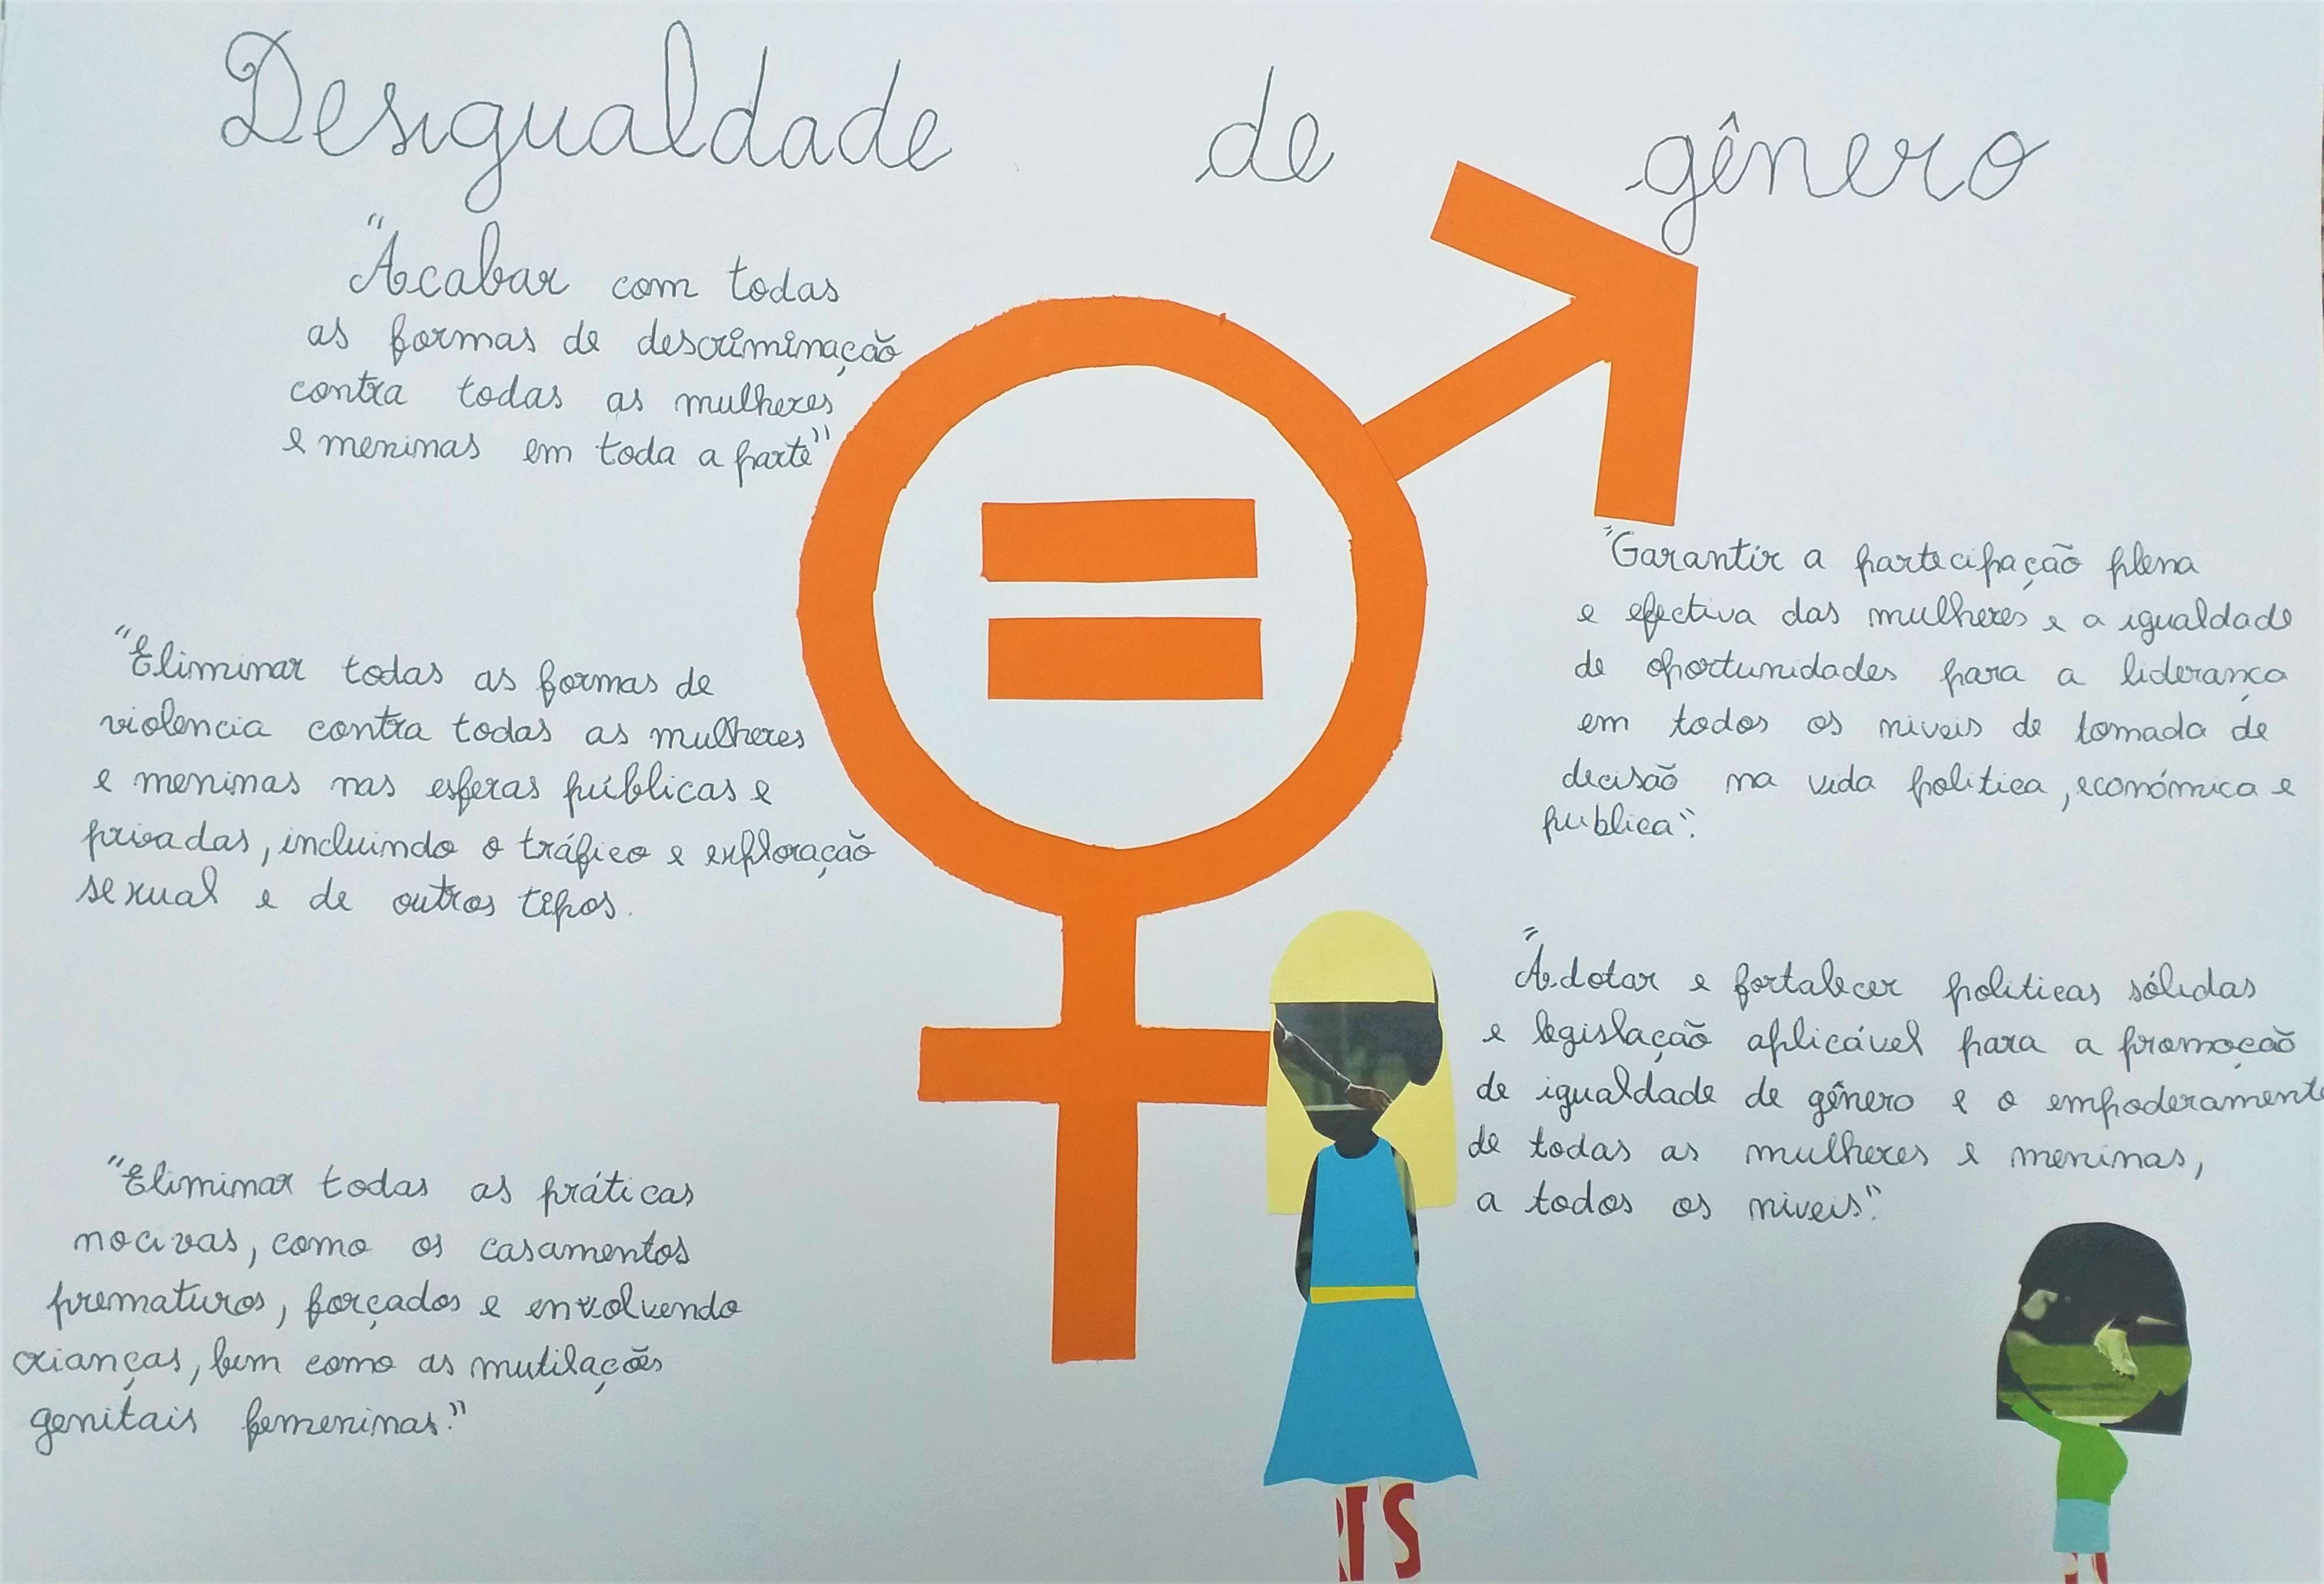 Desigualdade de gênero
"Acabar com todas
as formas de descriminação
contra todas as mulheres
e meninas em toda a parte"
"Eliminar todas as formas de
violencia contra todas as mulheres
e meninas nas esferas públicas e
privadas, incluindo o tráfico e exploração
sexual e de outros tipos.
"Eliminar todas as práticas
nocivas, como os casamentos
prematuros, forçados e envolvendo
crianças, bem como as mutilações
genitais femeninas."
"Garantir a partecipação plena
e efectiva das mulheres e a igualdade
de oportunidades para a liderança
em todos os niveis de tomada de
decisão na vida politica, económica e
publica".
"Adotar e fortalecer politicas sólidas
e legislação aplicável para a promoção
de igualdade de gênero e o empoderamento
de todas as mulheres e meninas,
a todos os niveis".
RTS